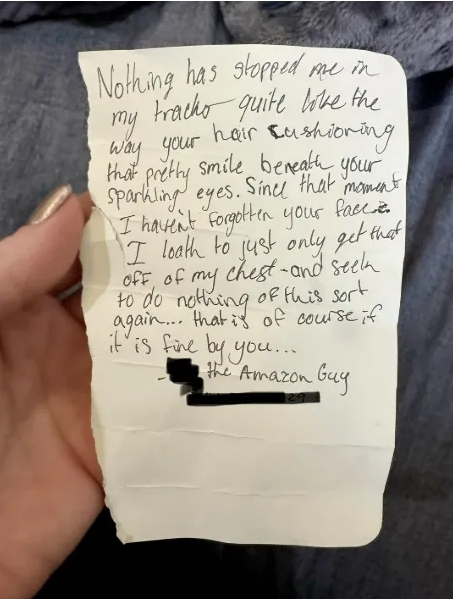 Nothing has stopped me in
my tracks quite like the
way your hair cushioning
that pretty smile beneath your
sparkling eyes. Since that moment
I haven't forgotten your face.
I loath to just only get that
off of my chest - and seek
to do nothing of this sort
again... that is of course if
it is fine by you...
- the Amazon Guy
29